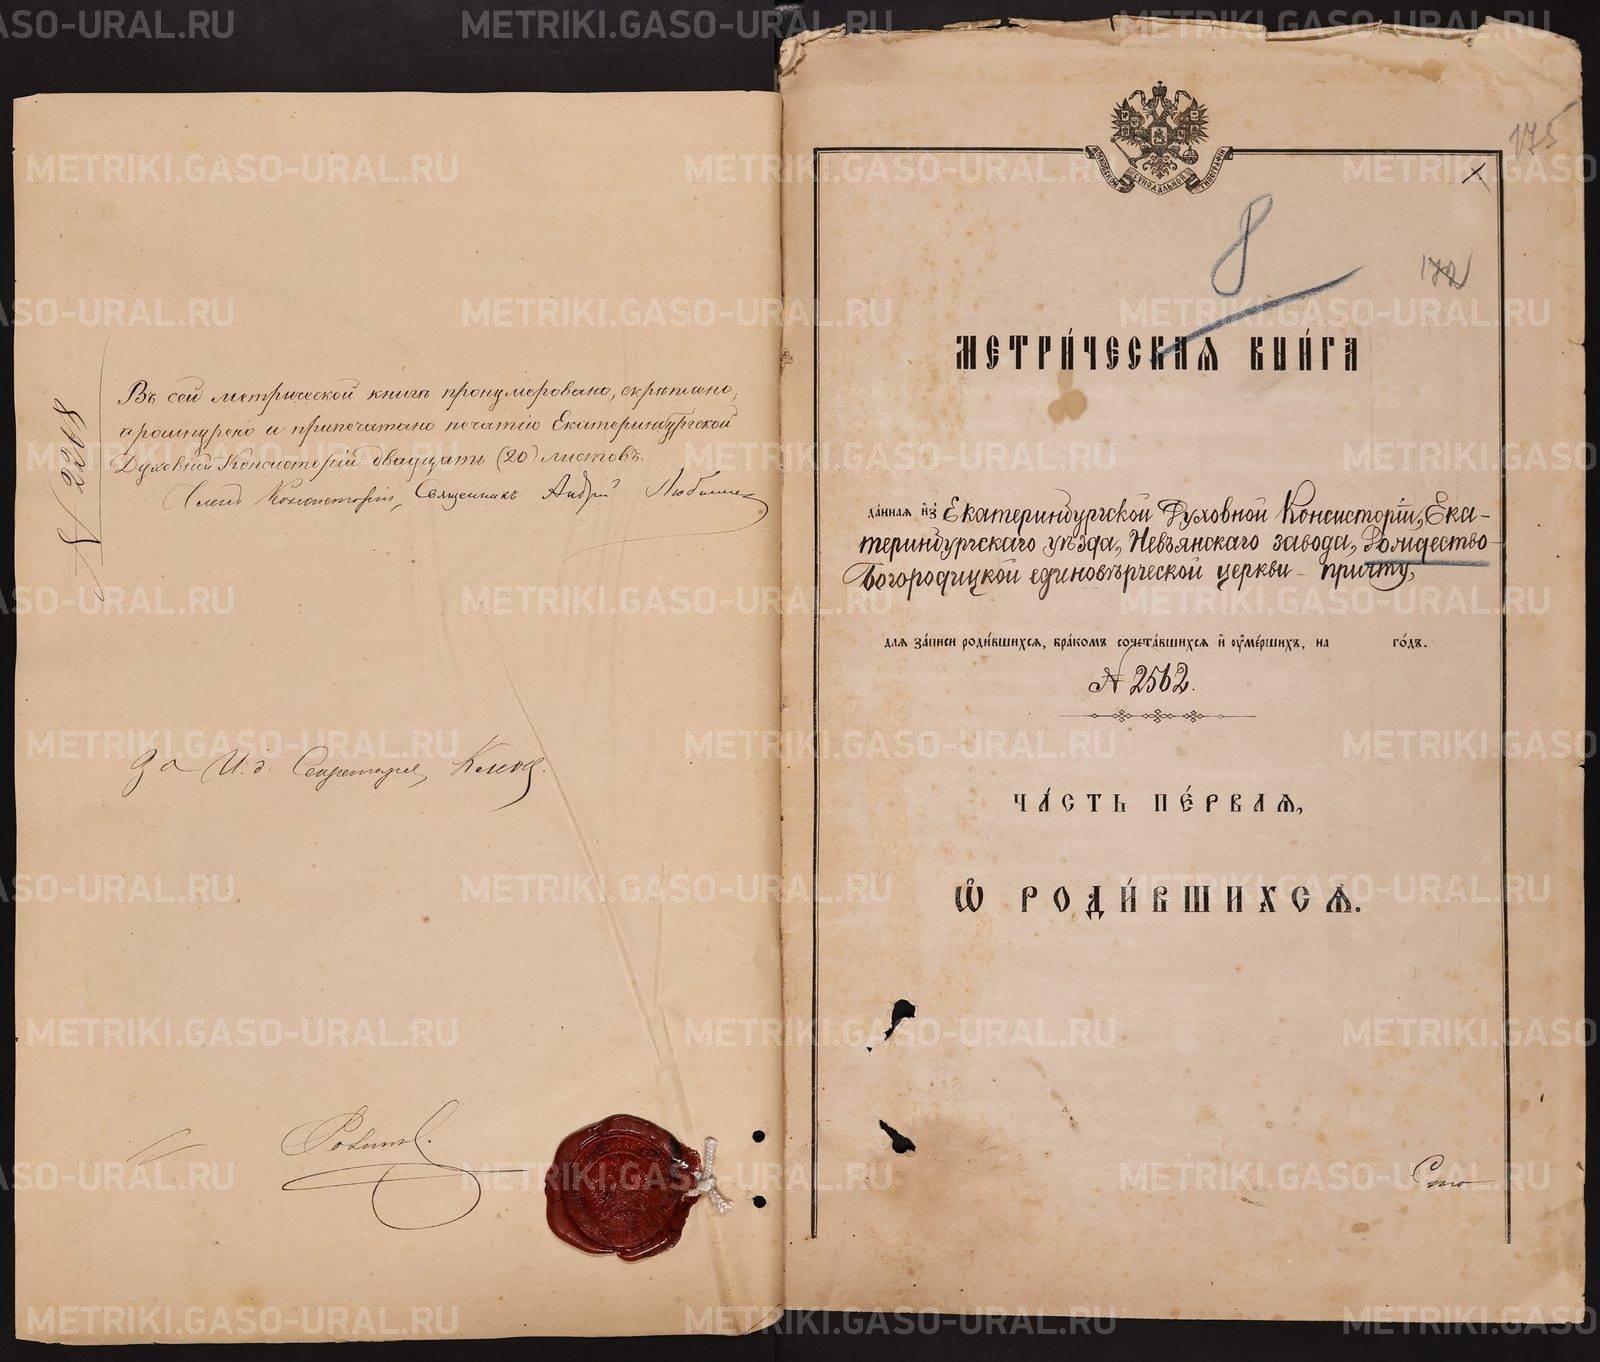 № 2208
Въ сей метрической книгѣ пронумеровано, скрѣплено,
прошнурено и припечатано печатію Екатеринбургской
Духовной Консисторіи двадцать (20) листовъ.
Членъ Консисторіи, Священникъ Андрей
За И. д. Секретаря,
175
8
172
МОСКОВСКОЙ СѴНОДАЛЬНОЙ ТИПОГРАФІИ
МЕТРИ́ЧЕСКАѦ КНИ́ГА
да́ннаѧ и҆з̾ Екатеринбургской Духовной Консисторіи, Ека-
теринбургскаго уѣзда, Невьянскаго завода, Рождество-
Богородицкой единовѣрческой церкви причту,
длѧ за́писи роди́вшихсѧ, бра́комъ сочета́вшихсѧ и҆ оу҆ме́ршихъ, на го́дъ.
№ 2562.
ЧА́СТЬ ПЕ́РВАѦ,
Ѽ РОДИ́ВШИХСѦ.
Сто
METRIKI.GASO-URAL.RU